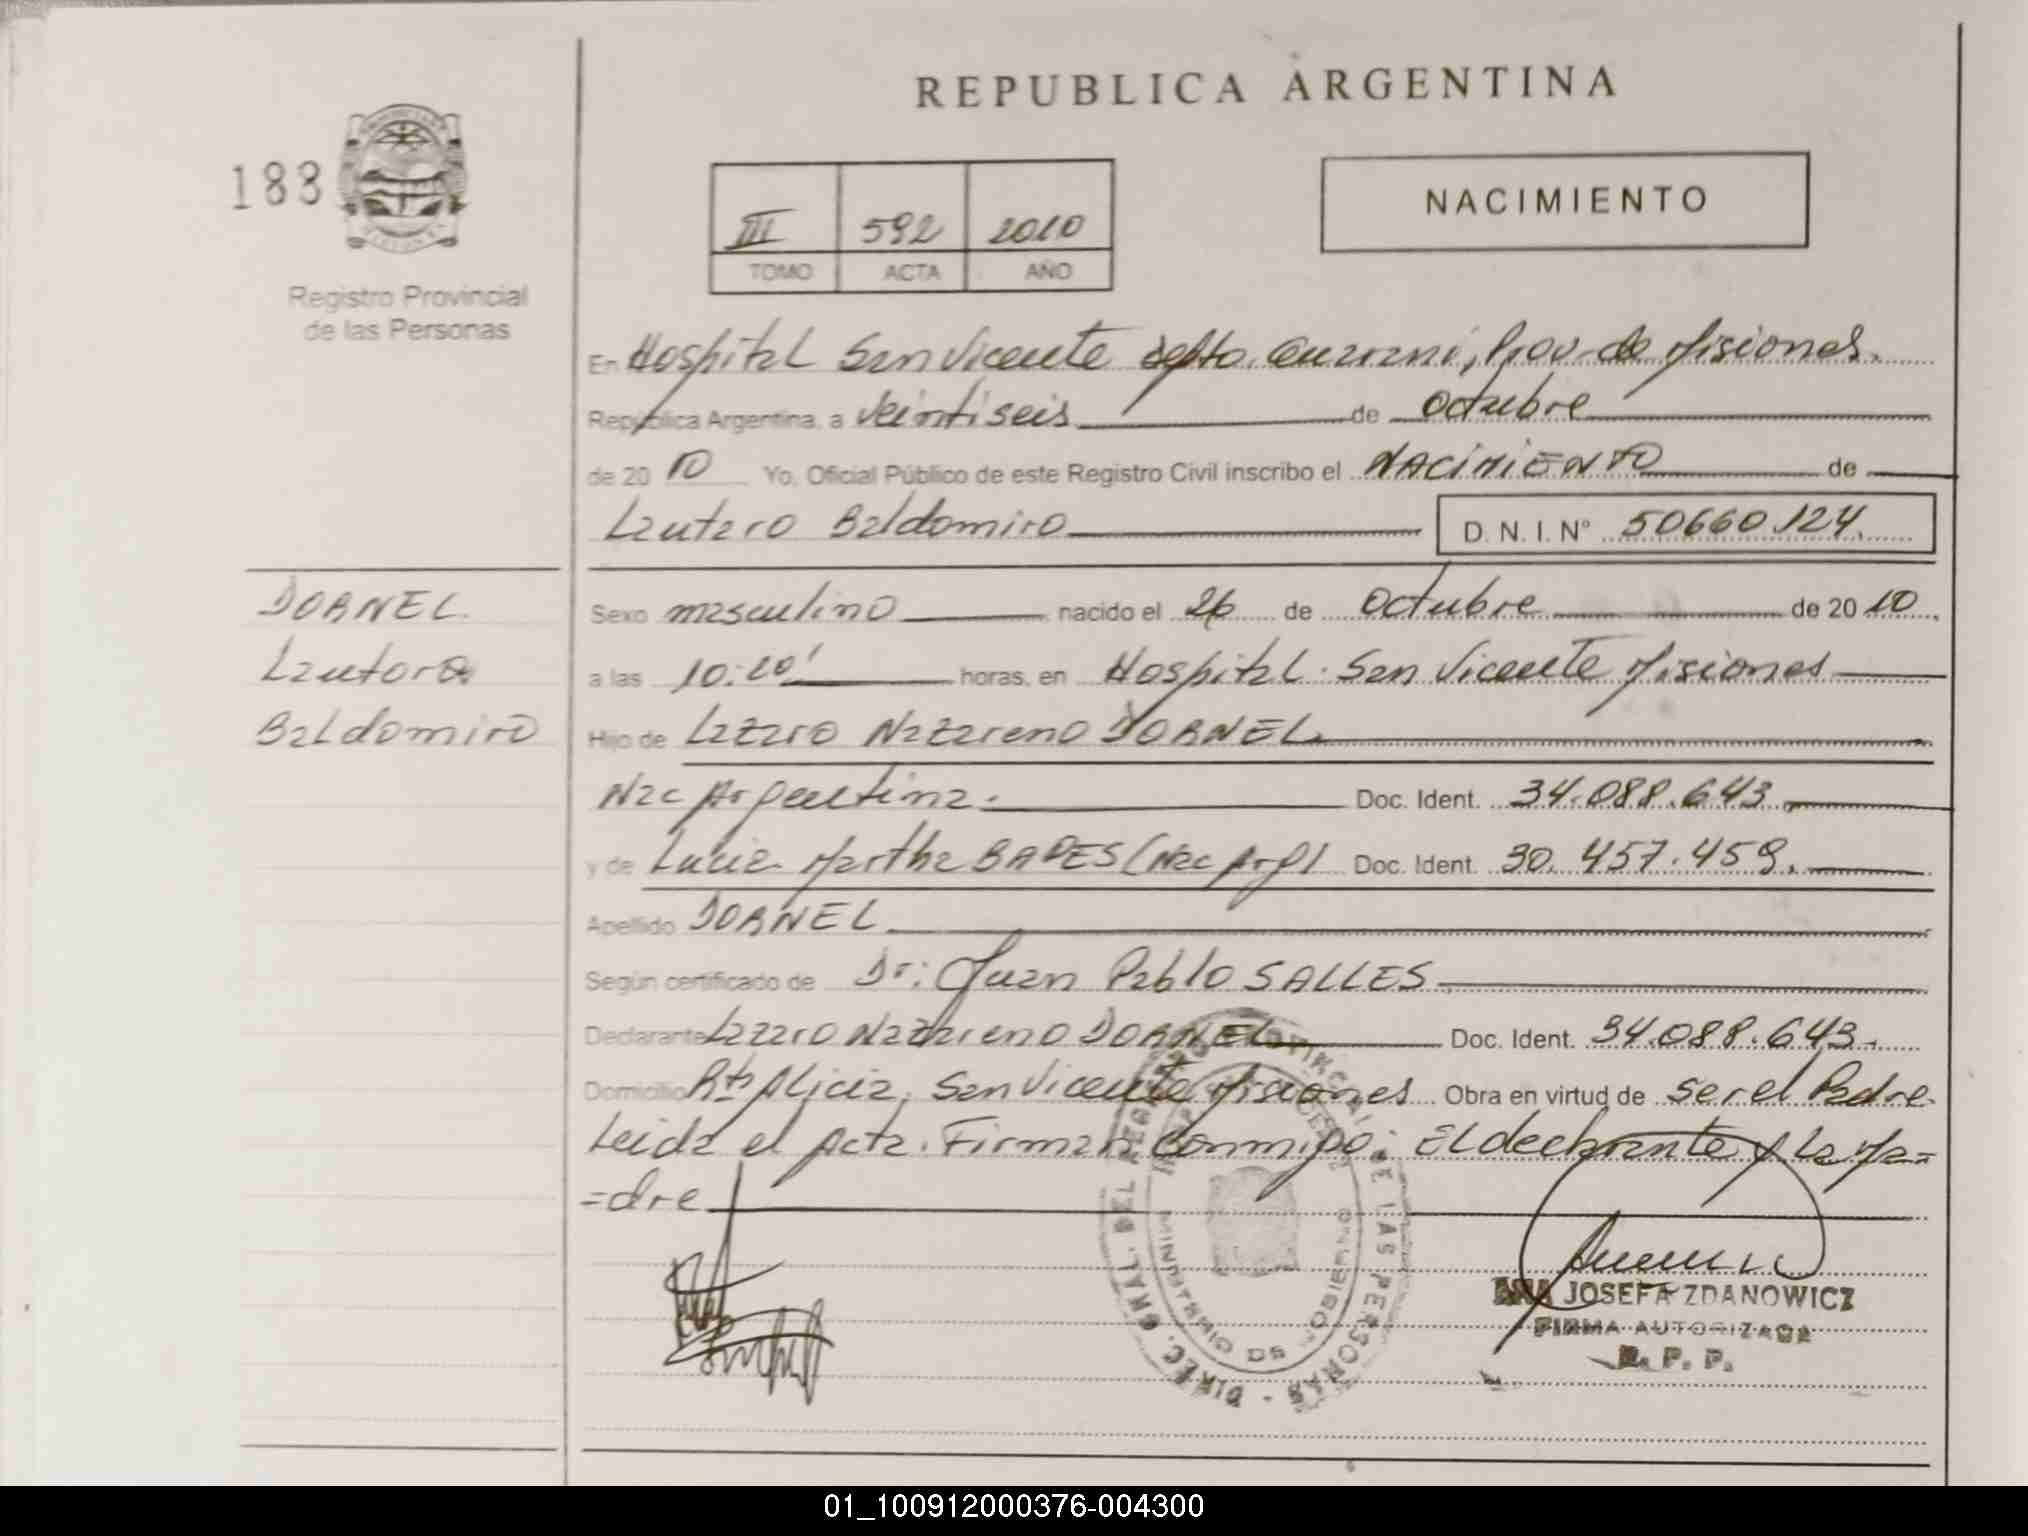 REPUBLICA ARGENTINA
183
III 592 2010
TOMO ACTA AÑO
NACIMIENTO
Registro Provincial
de las Personas
En Hospital San Vicente depto. Guarani, Prov. de Misiones.
República Argentina, a veintiseis de octubre
de 2010 Yo, Oficial Público de este Registro Civil inscribo el NACIMIENTO de
Lautaro Baldomiro D. N. I. Nº 50660.124.
DORNEL
Lautoro
Baldomiro
Sexo masculino nacido el 26 de octubre de 2010
a las 10:20' horas, en Hospital San Vicente Misiones
Hijo de Lazaro Nazareno DORNEL
Nac Argentina. Doc. Ident. 34.088.643
y de Lucia Martha (Nac Arg) Doc. Ident. 30.457.459.
Apellido DORNEL
Según certificado de Dr: Juan Pablo SALLES
Declarante Lazaro Nazareno DORNEL Doc. Ident. 34.088.643.
Domicilio Alicia, San Vicente Misiones Obra en virtud de ser el Padre.
Leida el Acta. Firman Conmigo: El declarante y La Ma=
=dre
DIREC. GRAL. DEL REGISTRO PROVINCIAL DE LAS PERSONAS
MINISTERIO DE GOBIERNO
ANA JOSEFA ZDANOWICZ
FIRMA AUTORIZADA
R. P. P.
01_100912000376-004300